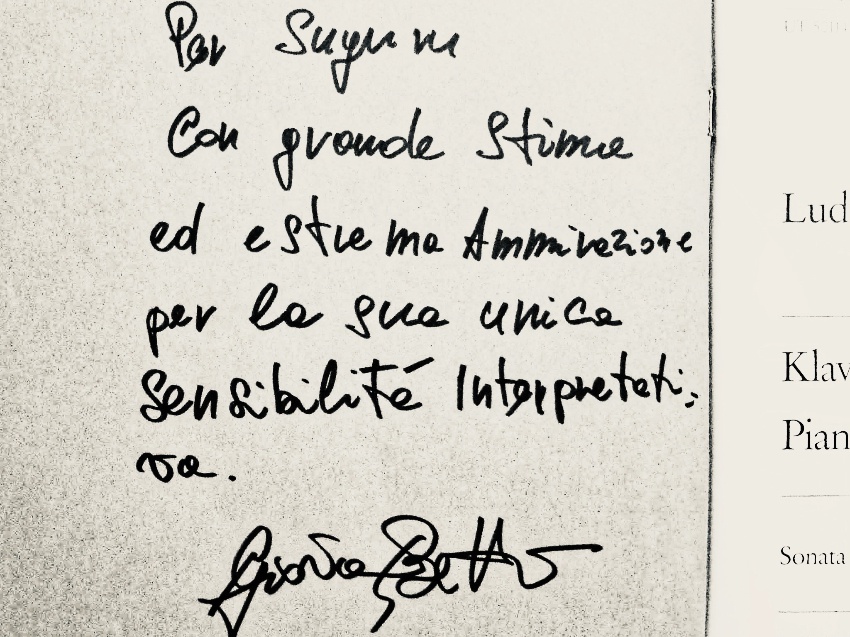 Per
Con grande Stima
ed estrema Ammirazione
per la sua unica
Sensibilità Interpretati-
va.
Lud
Klav
Pian
Sonata